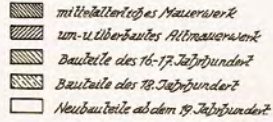 mittelalterliches Mauerwerk
um-u.überbautes Altmauerwerk
Bauteile des 16-17. Jahrhundert
Bauteile des 18. Jahrhundert
Neubauteile ab dem 19. Jahrhundert